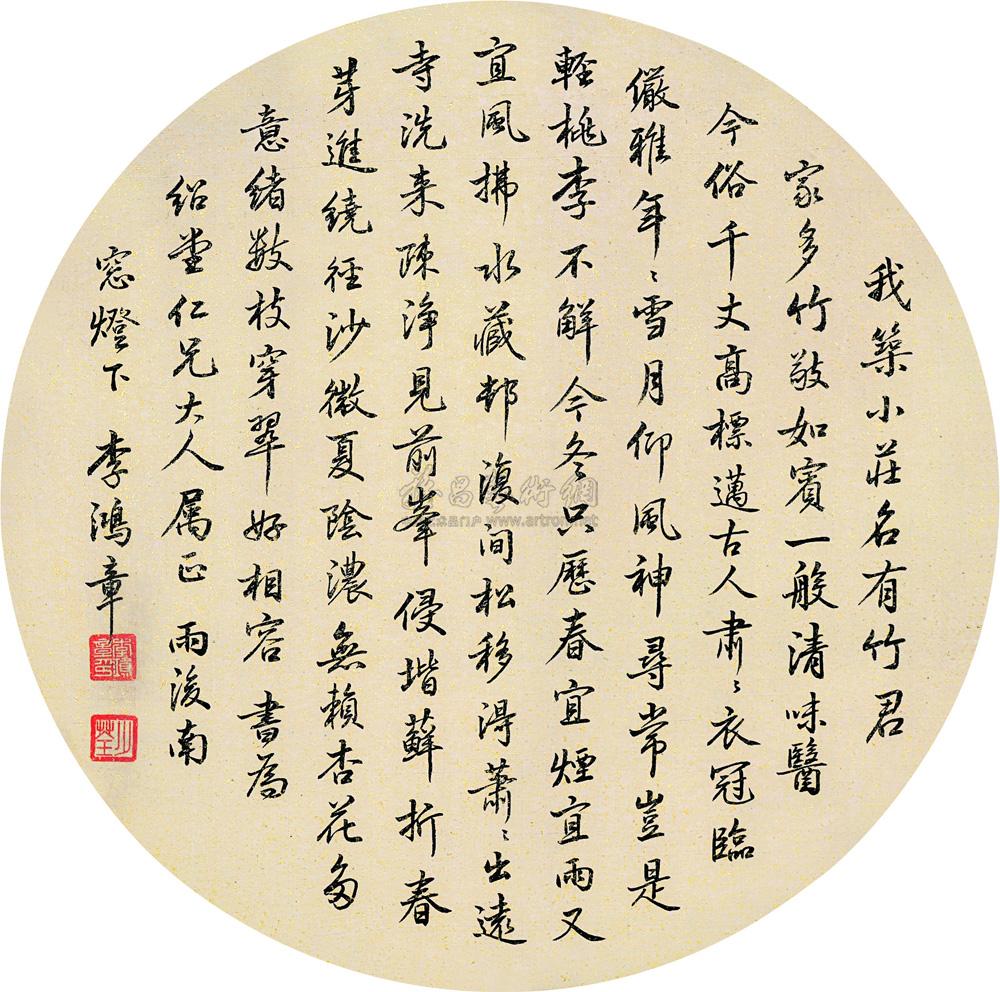 我築小莊名有竹君
家多竹敬如賓一般清味醫
今俗千丈高標邁古人肅〻衣冠臨
儼雅年〻雪月仰風神尋常豈是
輕桃李不解今冬只歷春宜煙宜雨又
宜風拂水藏邨復間松移得蕭〻出遠
寺洗来疎淨見前峯侵堦蘚折春
芽進繞徑沙微夏陰濃無賴杏花多
意緒数枝穿翠好相容 書為
紹堂仁兄大人属正 雨後南
窓燈下 李鴻章
www.artron.net